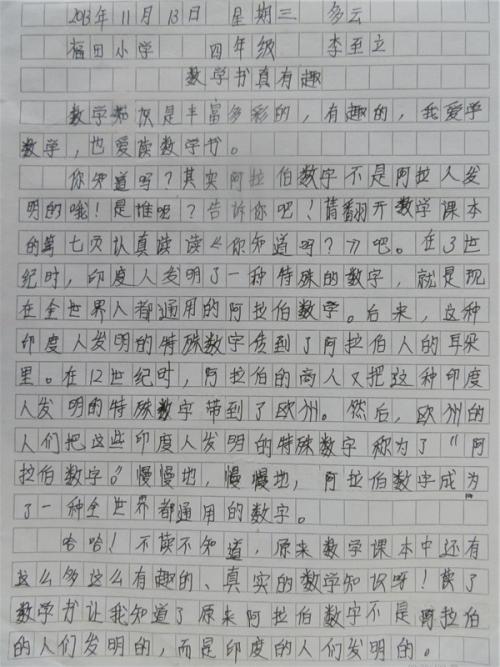 2013年11月13日 星期三 多云
福田小学 四年级 李至立
数学书真有趣
数学知识是丰富多彩的，有趣的，我爱学
数学，也爱读数学书。
你知道吗？其实阿拉伯数字不是阿拉人发
明的哦！是谁呢？告诉你吧！请翻开数学课本
的第七页认真读读《你知道吗？》吧。在3世
纪时，印度人发明了一种特殊的数字，就是现
在全世界人都通用的阿拉伯数学。后来，这种
印度人发明的特殊数字传到了阿拉伯人的耳朵
里。在12世纪时，阿拉伯的商人又把这种印度
人发明的特殊数字带到了欧洲。然后，欧洲的
人们把这些印度人发明的特殊数字称为了“阿
拉伯数字。”慢慢地，慢慢地，阿拉伯数字成为
了一种全世界都通用的数字。
哈哈！不读不知道，原来数学课本中还有
这么多这么有趣的、真实的数学知识呀！读了
数学书让我知道了原来阿拉伯数字不是阿拉伯
的人们发明的，而是印度的人们发明的。